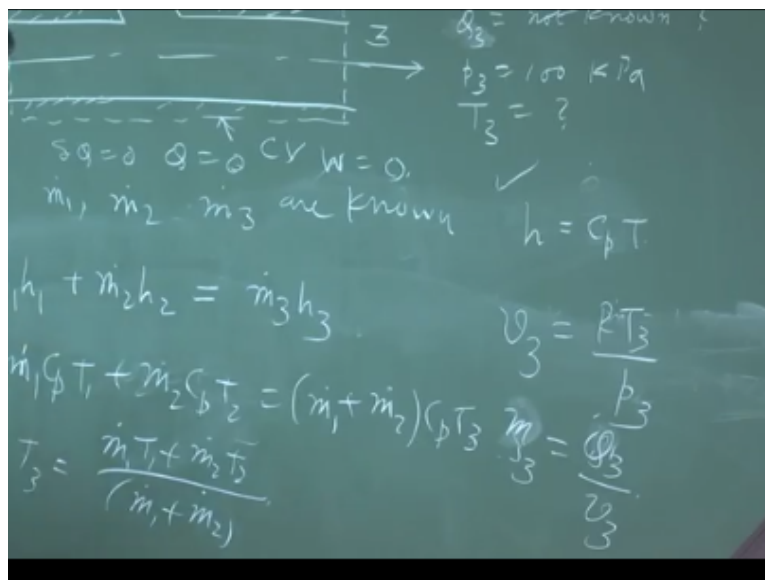 3
Q̇3 = not known ?
p3 = 100 kPa
T3 = ?
δQ=0 Q=0 CV W=0.
ṁ1, ṁ2 ṁ3 are known ✓
h = CpT.
1h1 + ṁ2h2 = ṁ3h3.
v3 = RT3 / p3
ṁ1CpT1 + ṁ2CpT2 = (ṁ1+ṁ2)CpT3
ṁ3 = Q̇3 / v3
T3 = ṁ1T1+ṁ2T3 / (ṁ1+ṁ2)